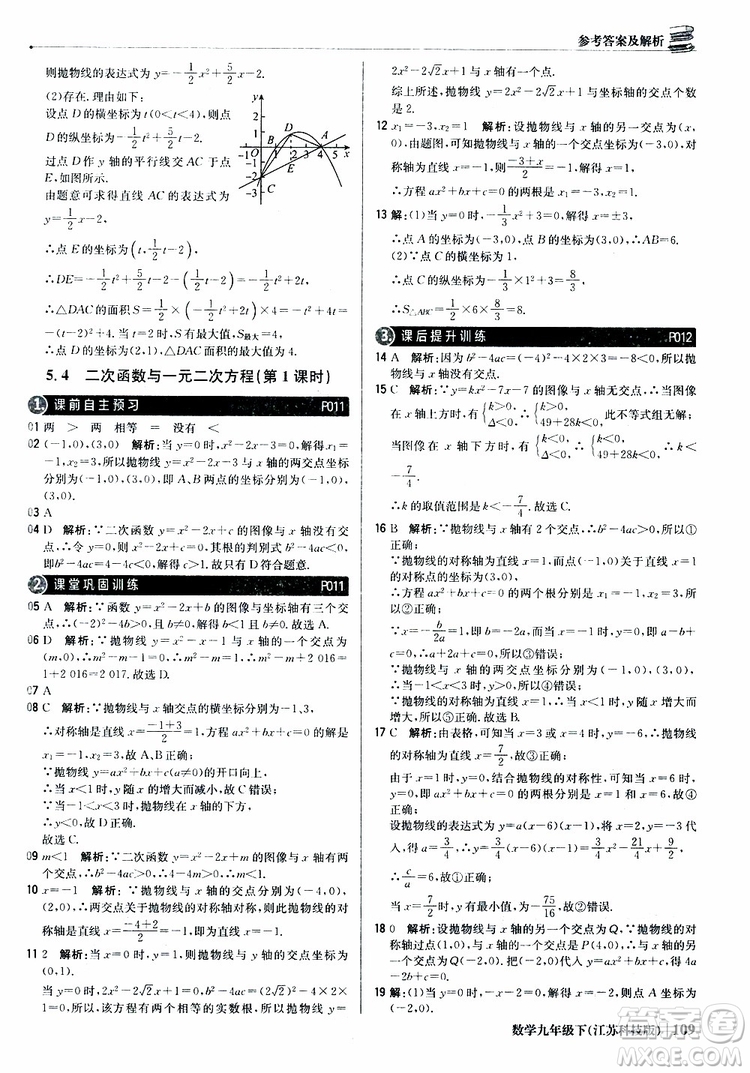 参考答案及解析
则抛物线的表达式为y=-1/2x²+5/2x-2.
(2)存在. 理由如下:
设点D的横坐标为t(0<t<4),则点
D的纵坐标为-1/2t²+5/2t-2.
过点D作y轴的平行线交AC于点
E,如图所示.
由题意可求得直线AC的表达式为
y=1/2x-2.
∴点E的坐标为(t,1/2t-2).
∴DE=-1/2t²+5/2t-2-(1/2t-2)=-1/2t²+2t.
∴△DAC的面积S=1/2×(-1/2t²+2t)×4=-t²+4t=
-(t-2)²+4. ∴当t=2时,S最大=4.
5.4 二次函数与一元二次方程(第1课时)
1. 课前自主预习 P011
01 两 > 两 相等 = 没有 <
02 (-1,0),(3,0) 解析:∵一元二次方程x²-2x-3=0的解是x₁=
-1,x₂=3,所以抛物线y=x²-2x-3与x轴的两交点坐标
分别是(-1,0),(3,0),即A、B两点的坐标分别是(-1,0),
(3,0).
03 A
04 D 解析:∵二次函数y=x²-2x+c的图像与x轴没有交
点,∴b²-4ac=4-4c<0,其根的判别式b²-4ac=4-
4c<0,∴c>1. 故只有D符合题意.
2. 课堂巩固训练 P011
05 A 解析:∵函数y=x²-2x+b的图像与坐标轴有三个交
点,
06 D 解析:∵抛物线y=x²-x-1与x轴的一个交点为
(m,0),∴m²-m-1=0. ∴m²-m=1. ∴m²-m+2 016=
1+2 016=2 017. 故选D.
07 A
08 C 解析:∵抛物线与x轴交点的横坐标分别为-1、3,
∴对称轴是直线x=(-1+3)/2=1,方程ax²+bx+c=0的解是
x₁=-1,x₂=3. 故A、B正确.
∵抛物线y=ax²+bx+c(a≠0)的开口向上,
∴当x<1时,y随x的增大而减小,故C错误.
∵当-1<x<2时,抛物线在x轴的下方,
∴y<0. 故D正确.
09 m<1 解析:∵二次函数y=x²-2x+m的图像与x轴有两
个交点,∴b²-4ac>0. ∴4-4m>0. ∴m<1.
10 x=-1 解析:∵抛物线与x轴的交点分别为(-4,0)、
(2,0),两交点关于抛物线的对称轴对称,
∴此抛物线的对称轴为直线x=(-4+2)/2=-1.
11 2 解析:当x=0时,y=1,则抛物线与y轴交点的坐标为
(0,1).
当y=0时,2x²-2√2x+1=0,b²-4ac=(-2√2)²-4×2×
1=0,所以该方程有两个相等的实数根,即抛物线y=
2x²-2√2x+1与x轴有一个点.
综上所述,抛物线y=2x²-2√2x+1与坐标轴的交点个数
是2.
12 x₁=-3,x₂=1 解析:设抛物线与x轴的另一交点为(x,
0),由题图,可知抛物线与x轴的一个交点为(-3,0),对
称轴为直线x=-1,则(-3+x)/2=-1,解得x=1.
∴方程ax²+bx+c=0的两个根是x₁=-3,x₂=1.
13 解:(1)当y=0时,-1/3(x-3)²+3=0,解得x₁=0,x₂=6,
∴点A的坐标为(0,0),点B的坐标为(6,0). ∴AB=6.
(2)∵点C的横坐标为1,
∴点C的纵坐标为-1/3×(1-3)²+3=-4/3+3=8/3.
∴S△ABC=1/2×6×8/3=8.
3. 课后提升训练 P012
14 A 解析:因为b²-4ac=1²-4×1×(-2)=1+8=9>0,所以
抛物线与x轴有两个不同的交点. 故选A.
15 C 解析:∵二次函数y=kx²-7x-7的图像与x轴无交点,
∴当图像在x轴上方时,{k>0, Δ<0, ∴{k>0, 49+28k<0, 此不等式组无解.
当图像在x轴下方时,{k<0, Δ<0, ∴{k<0, 49+28k<0, ∴k<
-7/4.
∴k的取值范围是k<-7/4. 故选C.
16 B 解析:∵抛物线与x轴有2个交点,∴b²-4ac>0,所以①
正确;
∵抛物线的对称轴为直线x=1,而点(-1,0)关于直线x=
1的对称点的坐标为(3,0),
∴方程ax²+bx+c=0的两个根是x₁=-1,x₂=3,所以②
正确;
∵x=-b/2a=1,即b=-2a,而x=-1时,y=0,即a-b+
c=0,∴a+2a+c=0,所以③错误;
∵抛物线与x轴的两点坐标分别为(-1,0)、(3,0),
∴当-1<x<3时,y>0,所以④错误;
∵抛物线的对称轴为直线x=1,
∴当x<1时,y随x的增大而增大,所以⑤正确. 故选B.
17 C 解析:由表格,可知当x=3或x=4时,y=-18,
∴抛物线的对称轴为直线x=7/2.
由于当x=1时,y=0,结合抛物线的对称性,可得当x=6
时,y=0.
设抛物线的表达式为y=a(x-6)(x-1),
当x=0时,y=6a=9/2,∴a=3/4. ∴y=3/4x²-21/4x+9/2,
∴c/a=6,故C正确.
当x=7/2时,y有最小值,为-75/16,故D错误. 故选C.
18 0 解析:设抛物线与x轴的另一个交点为Q,∵抛物线的对
称轴过点(1,0),与x轴的一个交点是P(4,0),∴与x轴的
另一个交点Q(-2,0). 把(-2,0)代入表达式得0=
4a-2b+c,∴4a-2b+c的值为0.
19 解:(1)当x=0时,y=-2,∴点A的坐标为(0,-2). 当y=
0时,x=-2,∴点B的坐标为(-2,0).
数学九年级下(江苏科技版) 109